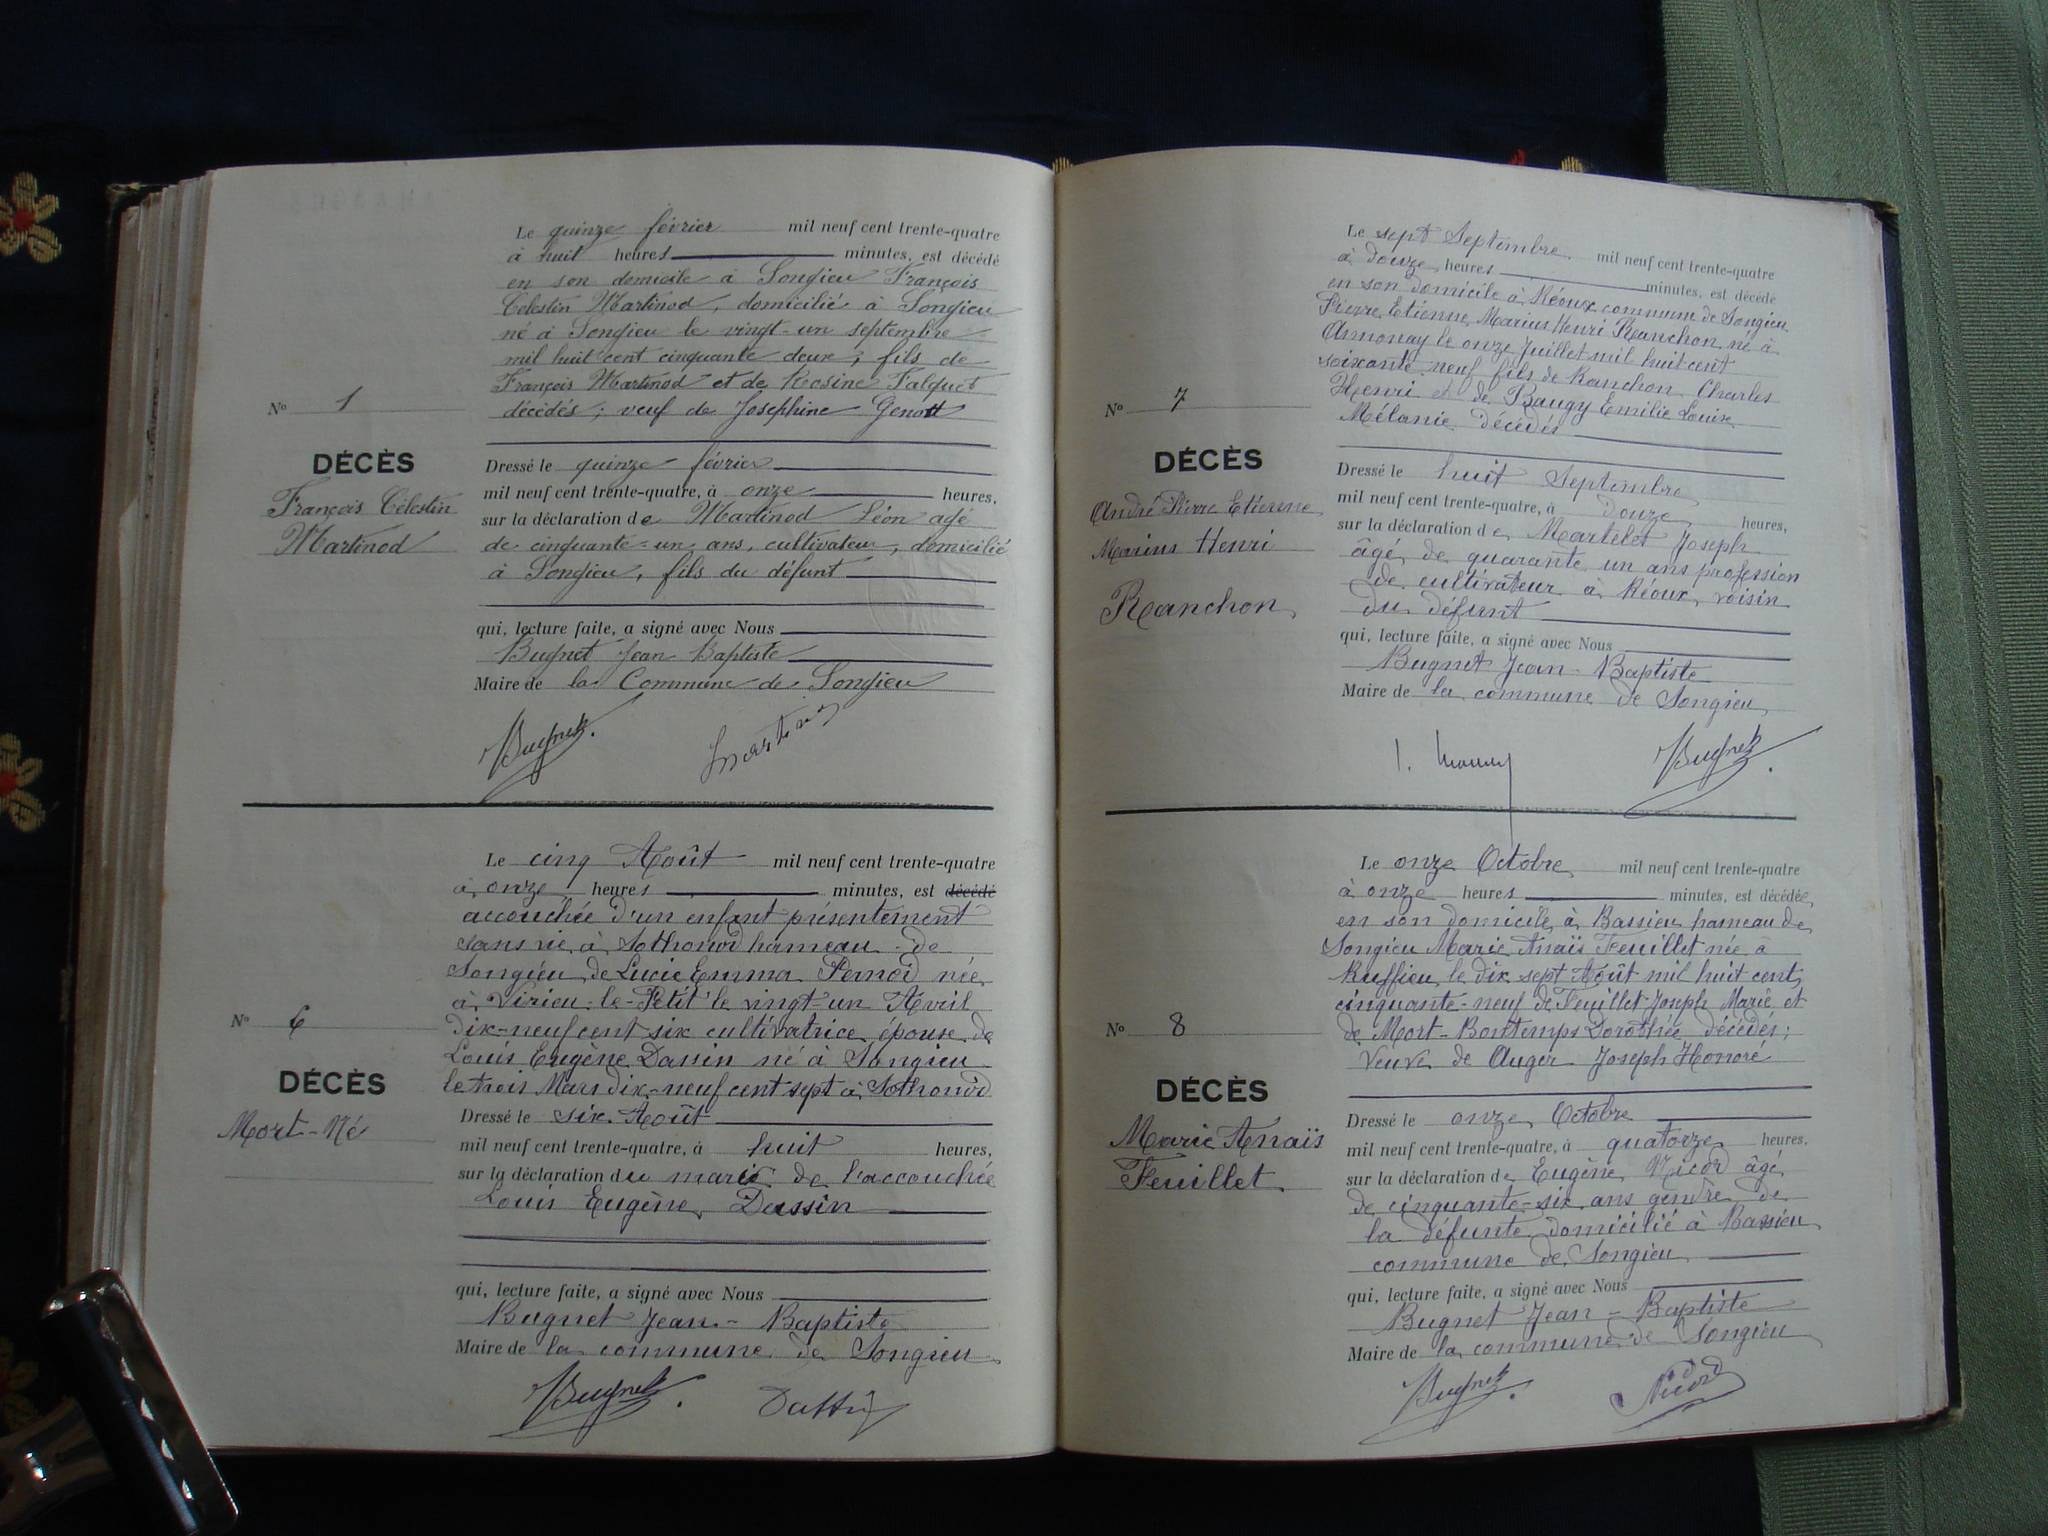 Le quinze février mil neuf cent trente-quatre
à huit heures minutes, est décédé
en son domicile à Songieu François
Célestin Martinod, domicilié à Songieu
né à Songieu le vingt-un septembre
mil huit cent cinquante deux ; fils de
François Martinod et de Rosine Falquet
décédés ; veuf de Joséphine Genott
N° 1
DÉCÈS
François Célestin
Martinod
Dressé le quinze février
mil neuf cent trente-quatre, à onze heures,
sur la déclaration de Martinod Léon agé
de cinquante-un ans, cultivateur, domicilié
à Songieu, fils du défunt
qui, lecture faite, a signé avec Nous
Bugnet Jean Baptiste
Maire de la Commune de Songieu
Bugnet.
Le cinq Août mil neuf cent trente-quatre
à onze heures minutes, est décédé
accouchée d'un enfant présentement
sans vie à Sothonod hameau de
Songieu de Lucie Emma Pernod née
à Virieu-le-Petit le vingt-un Avril
dix-neuf cent six cultivatrice épouse de
Louis Eugène Dassin né à Songieu
le trois Mars dix-neuf cent sept à Sothonod
N° 6
DÉCÈS
Mort-Né
Dressé le six Août
mil neuf cent trente-quatre, à huit heures,
sur la déclaration du mari de l'accouchée
Louis Eugène Dassin
qui, lecture faite, a signé avec Nous
Bugnet Jean-Baptiste
Maire de la commune de Songieu
Bugnet. Dassin
Le sept Septembre mil neuf cent trente-quatre
à douze heures minutes, est décédé
en son domicile à Réoux commune de Songieu
Pierre Etienne Marius Henri Ranchon né à
Annonay le onze Juillet mil huit cent
soixante neuf fils de Ranchon Charles
Henri et de Baugy Emilie Louise
Mélanie décédés
N° 7
DÉCÈS
André Pierre Etienne
Marius Henri
Ranchon
Dressé le huit Septembre
mil neuf cent trente-quatre, à douze heures,
sur la déclaration de Martelet Joseph
âgé de quarante un ans profession
de cultivateur à Réoux voisin
du défunt
qui, lecture faite, a signé avec Nous
Bugnet Jean-Baptiste
Maire de la commune de Songieu
Bugnet.
Le onze Octobre mil neuf cent trente-quatre
à onze heures minutes, est décédée
en son domicile à Bassieu hameau de
Songieu Marie Anaïs Feuillet née à
Ruffieu le dix sept Août mil huit cent
cinquante-neuf de Feuillet Joseph Marie et
de Mort-Bontemps Dorothée décédés ;
veuve de Auger Joseph Honoré
N° 8
DÉCÈS
Marie Anaïs
Feuillet
Dressé le onze Octobre
mil neuf cent trente-quatre, à quatorze heures,
sur la déclaration de Eugène Nicod âgé
de cinquante-six ans gendre de
la défunte domicilié à Bassieu
commune de Songieu
qui, lecture faite, a signé avec Nous
Bugnet Jean-Baptiste
Maire de la commune de Songieu
Bugnet. Nicod